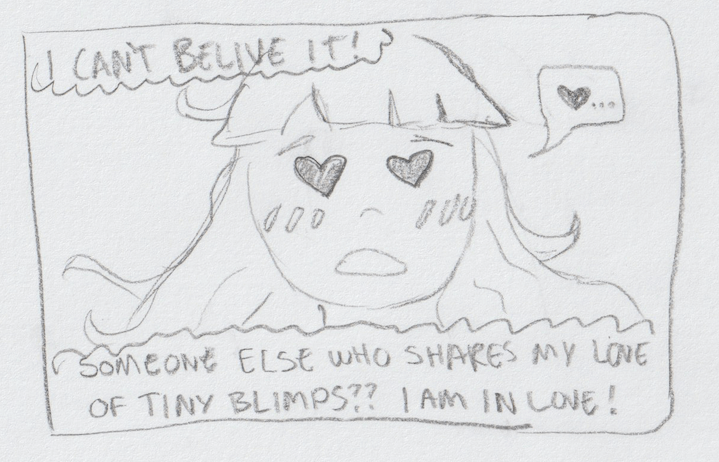 I CAN'T BELIVE IT!
...
SOMEONE ELSE WHO SHARES MY LOVE
OF TINY BLIMPS?? I AM IN LOVE!